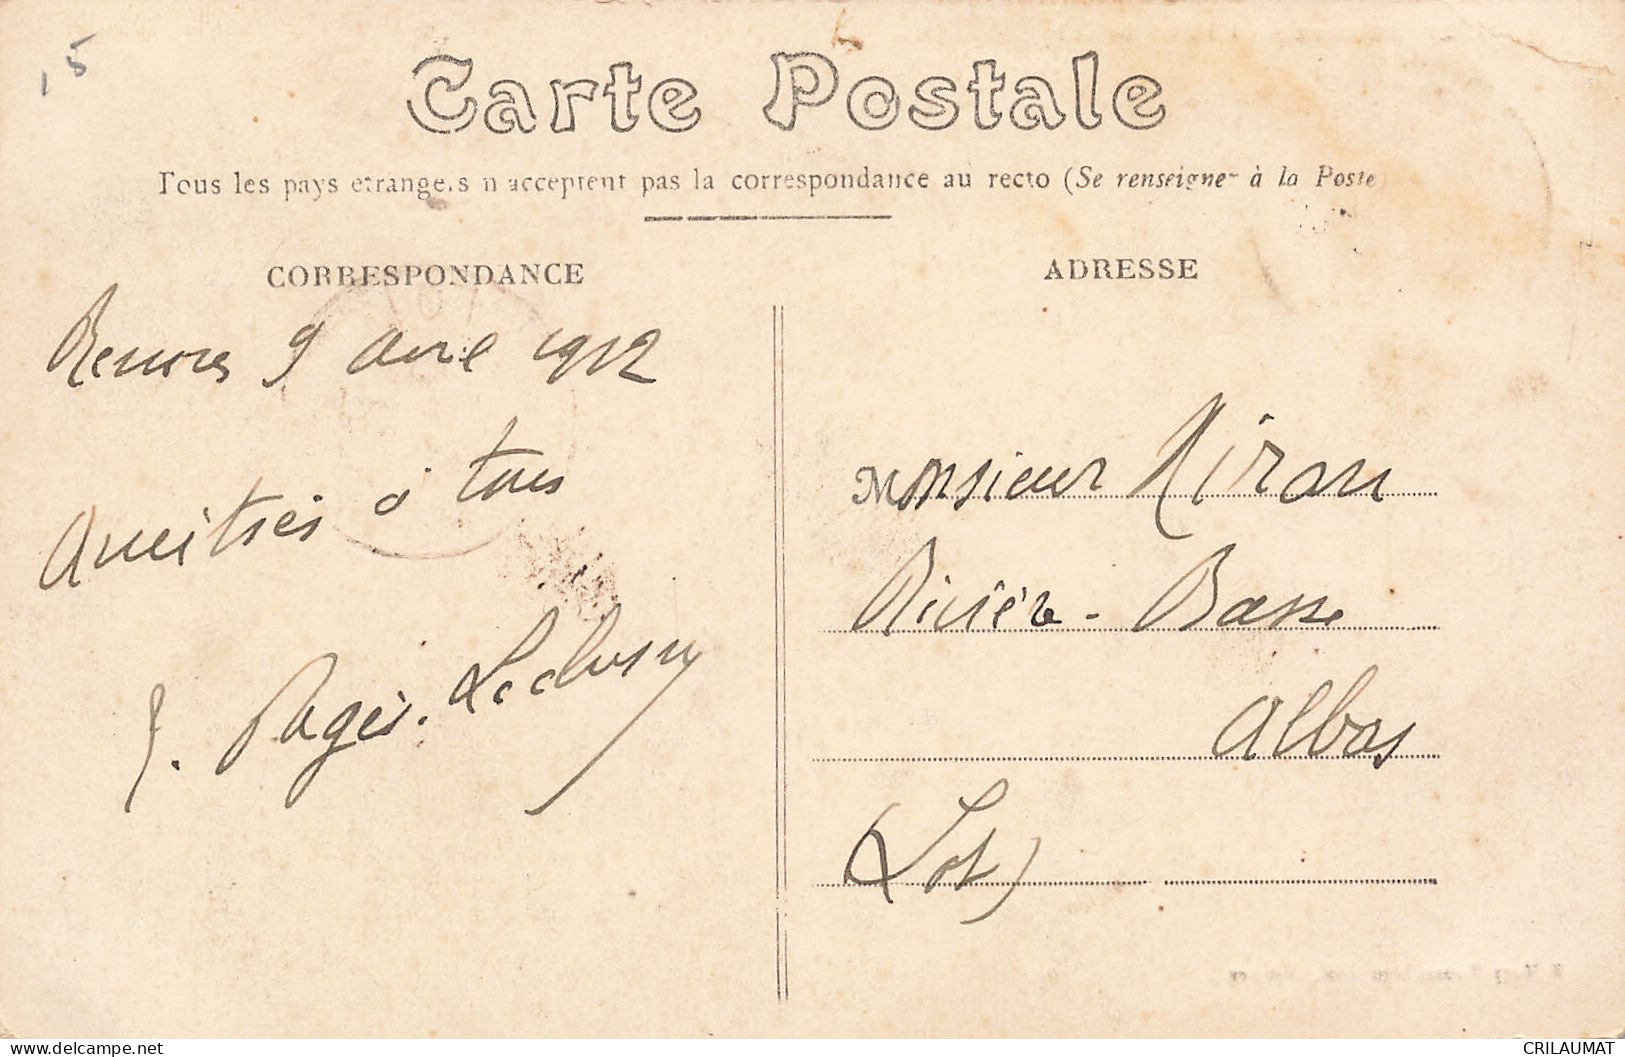 15
Carte Postale
Tous les pays etrangers n'acceptent pas la correspondance au recto (Se renseigner à la Poste
CORRESPONDANCE
9 avril 1912
Amitiés à tous
J. Pagès.
ADRESSE
Monsieur Miran
Rivière-Basse
Albas
(Lot)
CRILAUMAT